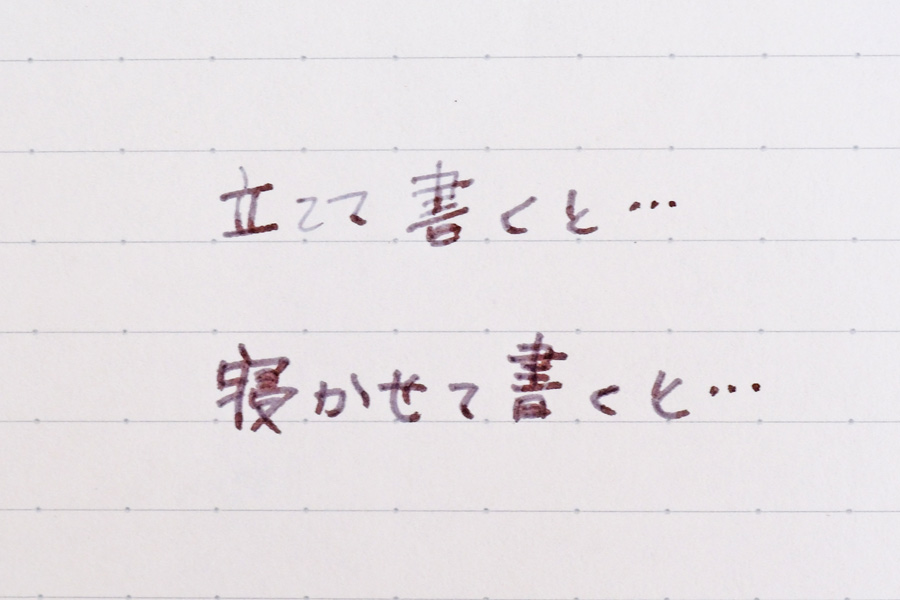 立てて書くと…
寝かせて書くと…